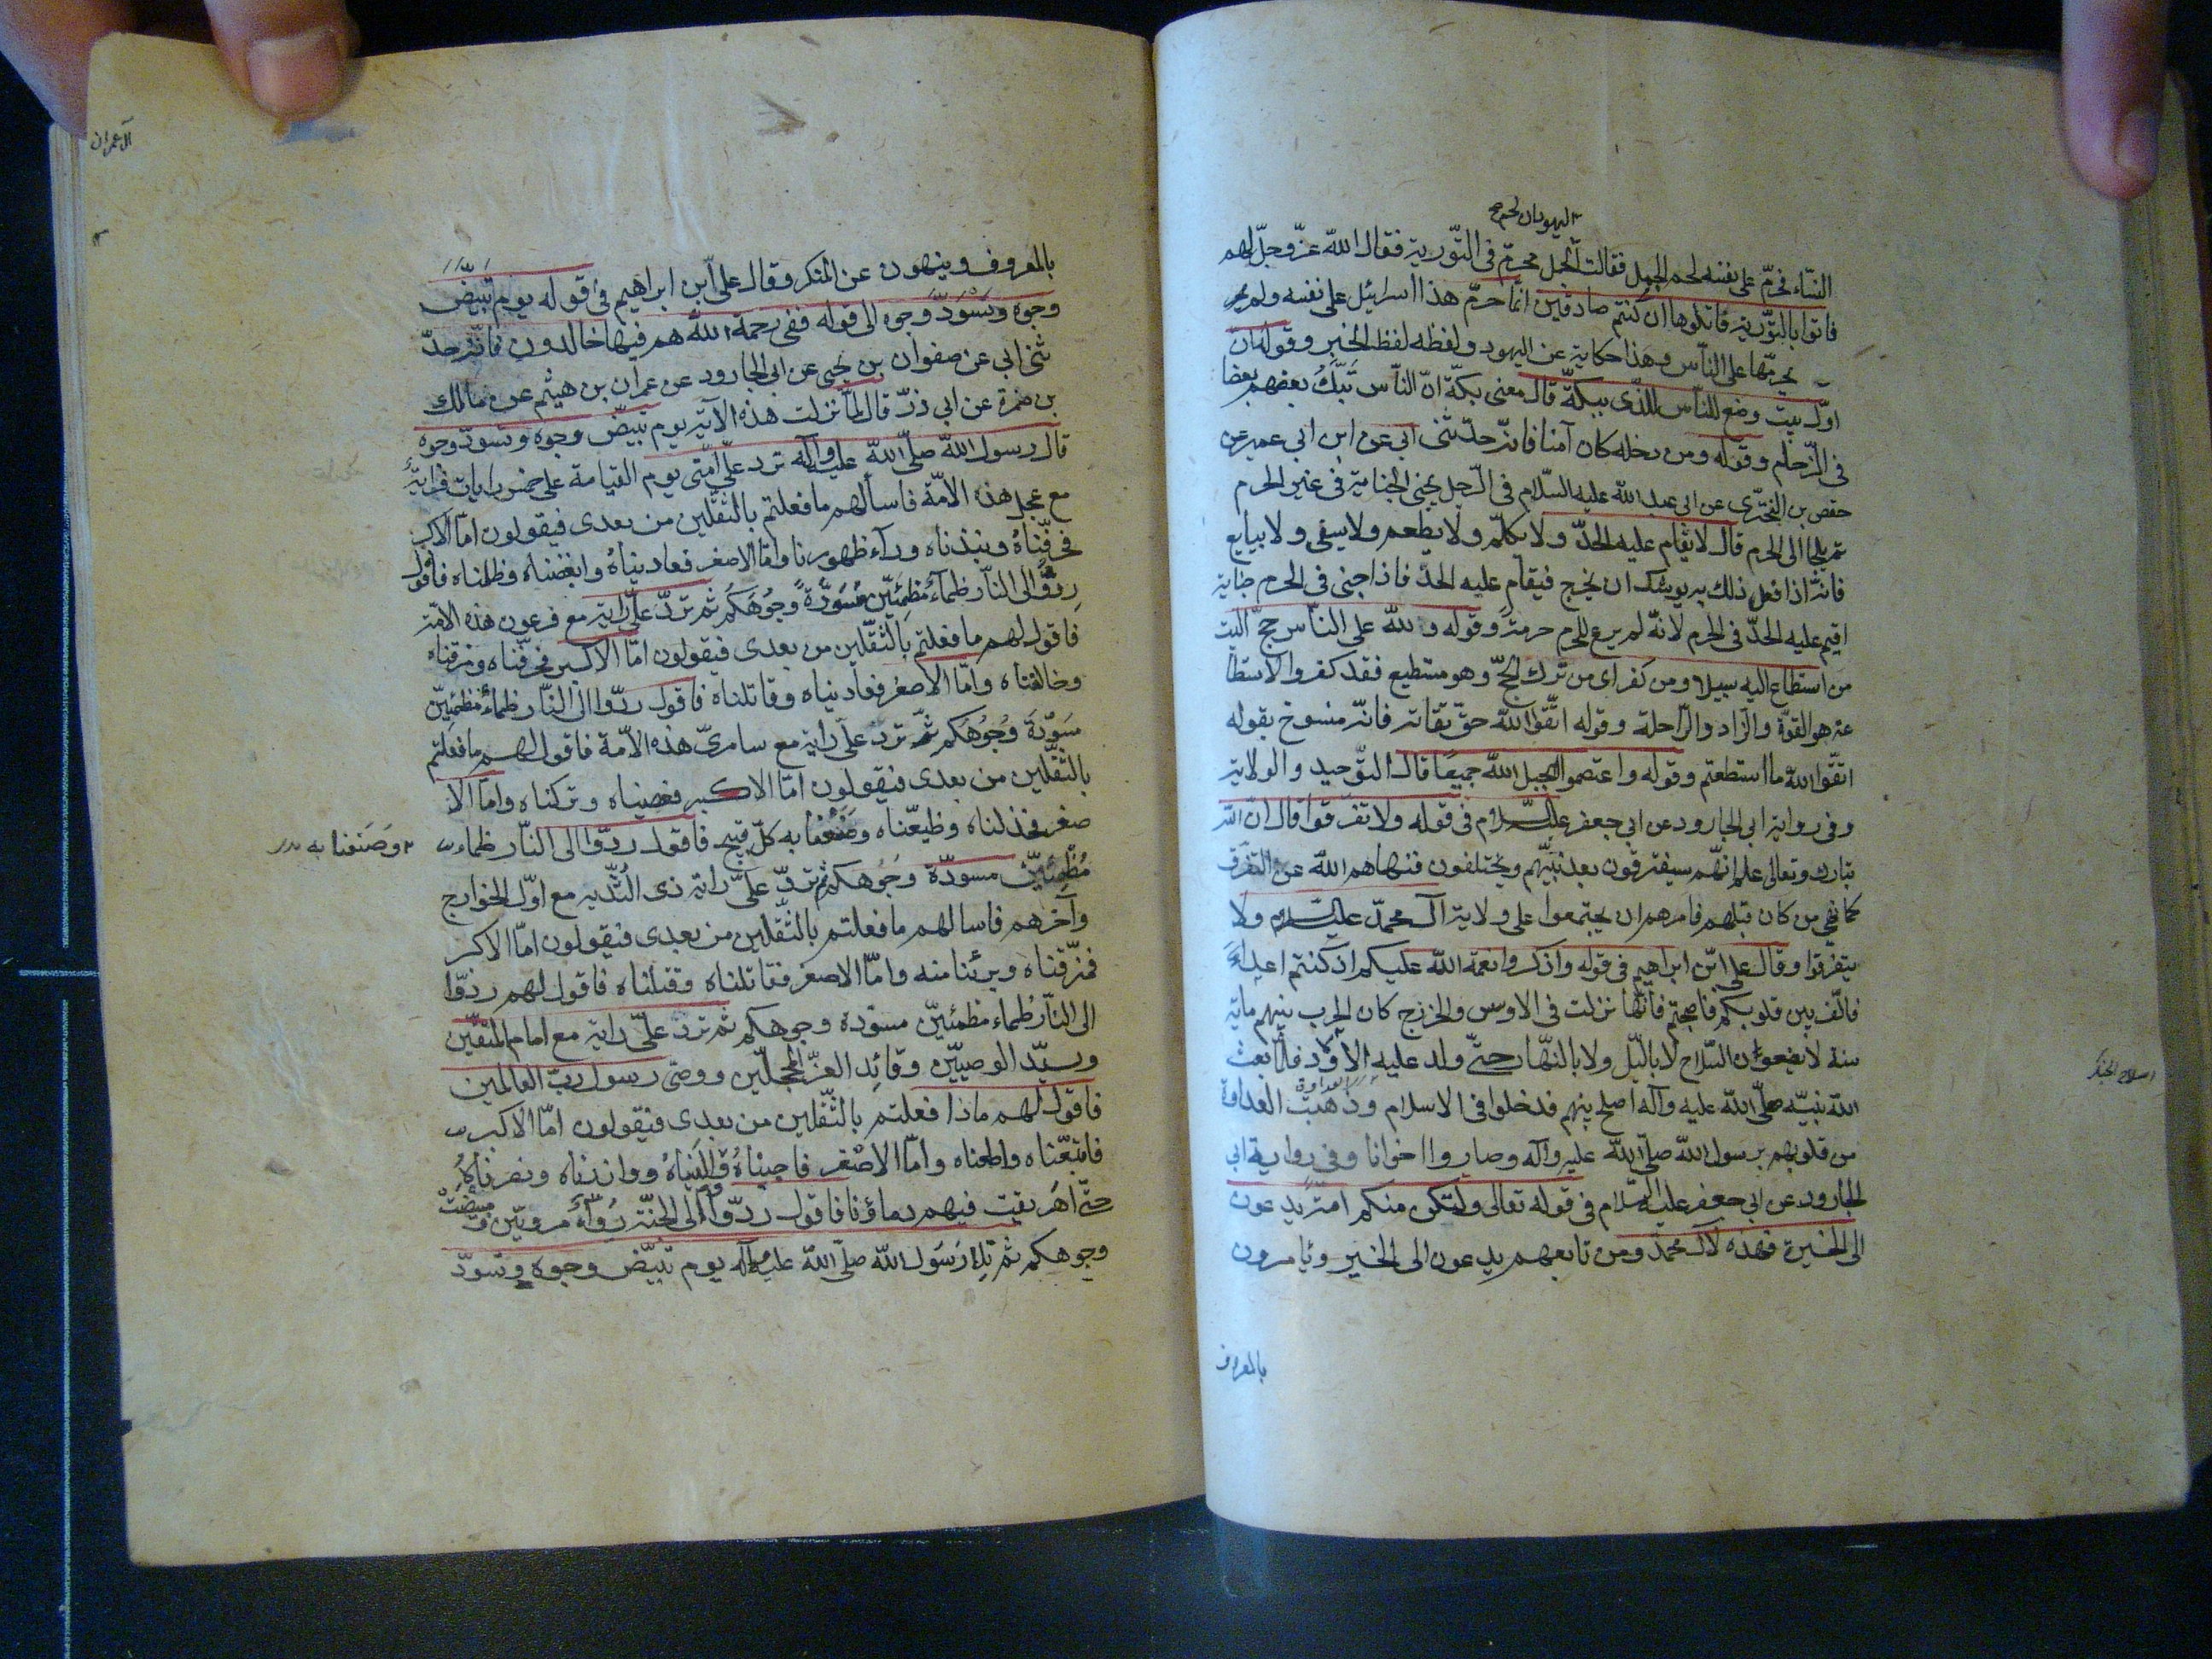 اليهود ان لحم
النساء فحرّم على نفسه لحم الجمل فقالت الجمل محرّم فى التّورية فقال اللّه عزّ وجلّ لهم
فاتوا بالتّورية فاتلوها ان كنتم صادقين انّما حرّم هذا اسرائيل على نفسه ولم
يحرمّها على النّاس وهذا حكاية عن اليهود ولفظه لفظ الخبر وقوله ان
اوّل بيت وضع للنّاس للذّى ببكّة قال معنى بكّة انّ النّاس تبّك بعضهم بعضا
فى الزّحام وقوله ومن دخله كان آمنا فانّه حدّثنى ابى عن ابن ابى عمير عن
حفص بن البخترى عن ابى عبد اللّه عليه السّلام فى الرّجل يجنى الجناية فى غير الحرم
ثم يلجا الى الحرم قال لا يقام عليه الحدّ ولا يكلّم ولا يطعم ولا يسقى ولا يبايع
فانّه اذا فعل ذلك به يوشك ان يخرج فيقام عليه الحدّ فاذا جنى فى الحرم جناية
اقيم عليه الحدّ فى الحرم لانّه لم يرع للحرم حرمة وقوله وللّه على النّاس حجّ البيت
من استطاع اليه سبيلا ومن كفر اى من ترك الحجّ وهو مستطيع فقد كفر والاستطا
عة هو القوّة والزاد والرّاحلة وقوله اتّقوا اللّه حقّ تقاته فانّه منسوخ بقوله
اتقّوا اللّه ما استطعتم وقوله واعتصموا بحبل اللّه جميعا قال التوّحيد والولاية
وفى رواية ابى الجارود عن ابى جعفر عليه السّلام فى قوله ولا تفرّقوا قال انّ اللّه
تبارك وتعالى علم انّهم سيفترقون بعد نبيّهم ويختلفون فنهاهم اللّه عن التفرّق
كما نهى من كان قبلهم فامرهم ان يجتمعوا على ولاية آل محمدّ عليه السّلام ولا
يتفرقوا وقال علىّ ابن ابراهيم فى قوله واذكروا نعمة اللّه عليكم اذ كنتم اعداءً
فالّف بين قلوبكم فاصبحتم فانّها نزلت فى الاوس والخزرج كان الحرب بينهم ماية
سنة لا يضعون السّلاح لا بالليّل ولا بالنهّار حتىّ ولد عليه الاولاد فلمّا بعث
اللّه نبيّه صلّى اللّه عليه وآله اصلح بينهم فدخلوا فى الاسلام وذهبت العداوة
من قلوبهم برسول اللّه صلّى اللّه عليه وآله وصاروا اخوانا وفى رواية ابى
الجارود عن ابى جعفر عليه السّلام فى قوله تعالى ولتكن منكم امّة يدعون
الى الخير فهذه لآل محمّد ومن تابعهم يدعون الى الخير ويامرون
بالمعروف
آل عمران
بالمعروف وينهون عن المنكر وقال علىّ ابن ابراهيم فى قوله يوم تبيّض
وجوه وتسودّ وجوه الى قوله ففى رحمة اللّه هم فيها خالدون فانّه حدّ
ثنى ابى عن صفوان بن يحيى عن ابى الجارود عن عمران بن هيثم عن مالك
بن ضمرة عن ابى ذرّ قال لمّا نزلت هذه الآية يوم تبيضّ وجوه وتسودّ وجوه
قال رسول اللّه صلّى اللّه عليه وآله ترد علىّ امّتى يوم القيامة على خمس رايات فراية
مع عجل هذه الامّة فاسألهم ما فعلتم بالثقّلين من بعدى فيقولون امّا الاكبر
فحرّفناه ونبذناه ورآء ظهورنا وامّا الاصغر فعاديناه وابغضناه وظلمناه فاقول
ردّوا الى النّار ظماءً مظمئيّن مسودّةً وجوهكم ثم تردّ علىّ راية مع فرعون هذه الامّة
فاقول لهم ما فعلتم بالثقّلين من بعدى فيقولون امّا الاكبر فحرّفناه ومزقناه
وخالفناه وامّا الاصغر فعاديناه وقاتلناه فاقول ردّوا الى النّار ظماءً مظمئيّن
مسودّة وجوهكم ثمّ تردّ علىّ راية مع سامرىّ هذه الامّة فاقول لهم ما فعلتم
بالثقّلين من بعدى فيقولون امّا الاكبر فعصيناه وتركناه وامّا الا
صغر فخذلناه وضيعّناه وصنعنا به كلّ قبيح فاقول ردّوا الى النّار ظماء
وصنعنا به
مظمئيّن مسودّة وجوهكم ثم تردّ علىّ راية ذى الثّدية مع اوّل الخوارج
وآخرهم فاسالهم ما فعلتم بالثقّلين من بعدى فيقولون امّا الاكبر
فمزّقناه وبرئنا منه وامّا الاصغر فقاتلناه وقتلناه فاقول لهم ردّوا
الى النّار ظماء مظمئيّن مسوّدة وجوهكم ثم ترد علىّ راية مع امام المتقيّن
وسيّد الوصييّن وقائد الغرّ المحجّلين ووصىّ رسول ربّ العالمين
فاقول لهم ماذا فعلتم بالثّقلين من بعدى فيقولون امّا الاكبر
فاتبعّناه واطعناه وامّا الاصغر فاحبيناه وواليناه ووازرناه ونصرناه
حتىّ اهريقت فيهم دماؤنا فاقول ردّوا الى الجنّة روّاءً مرويّين مبيضّة
وجوهكم ثم تلا رسول اللّه صلّى اللّه عليه وآله يوم تبيّض وجوه وتسودّ